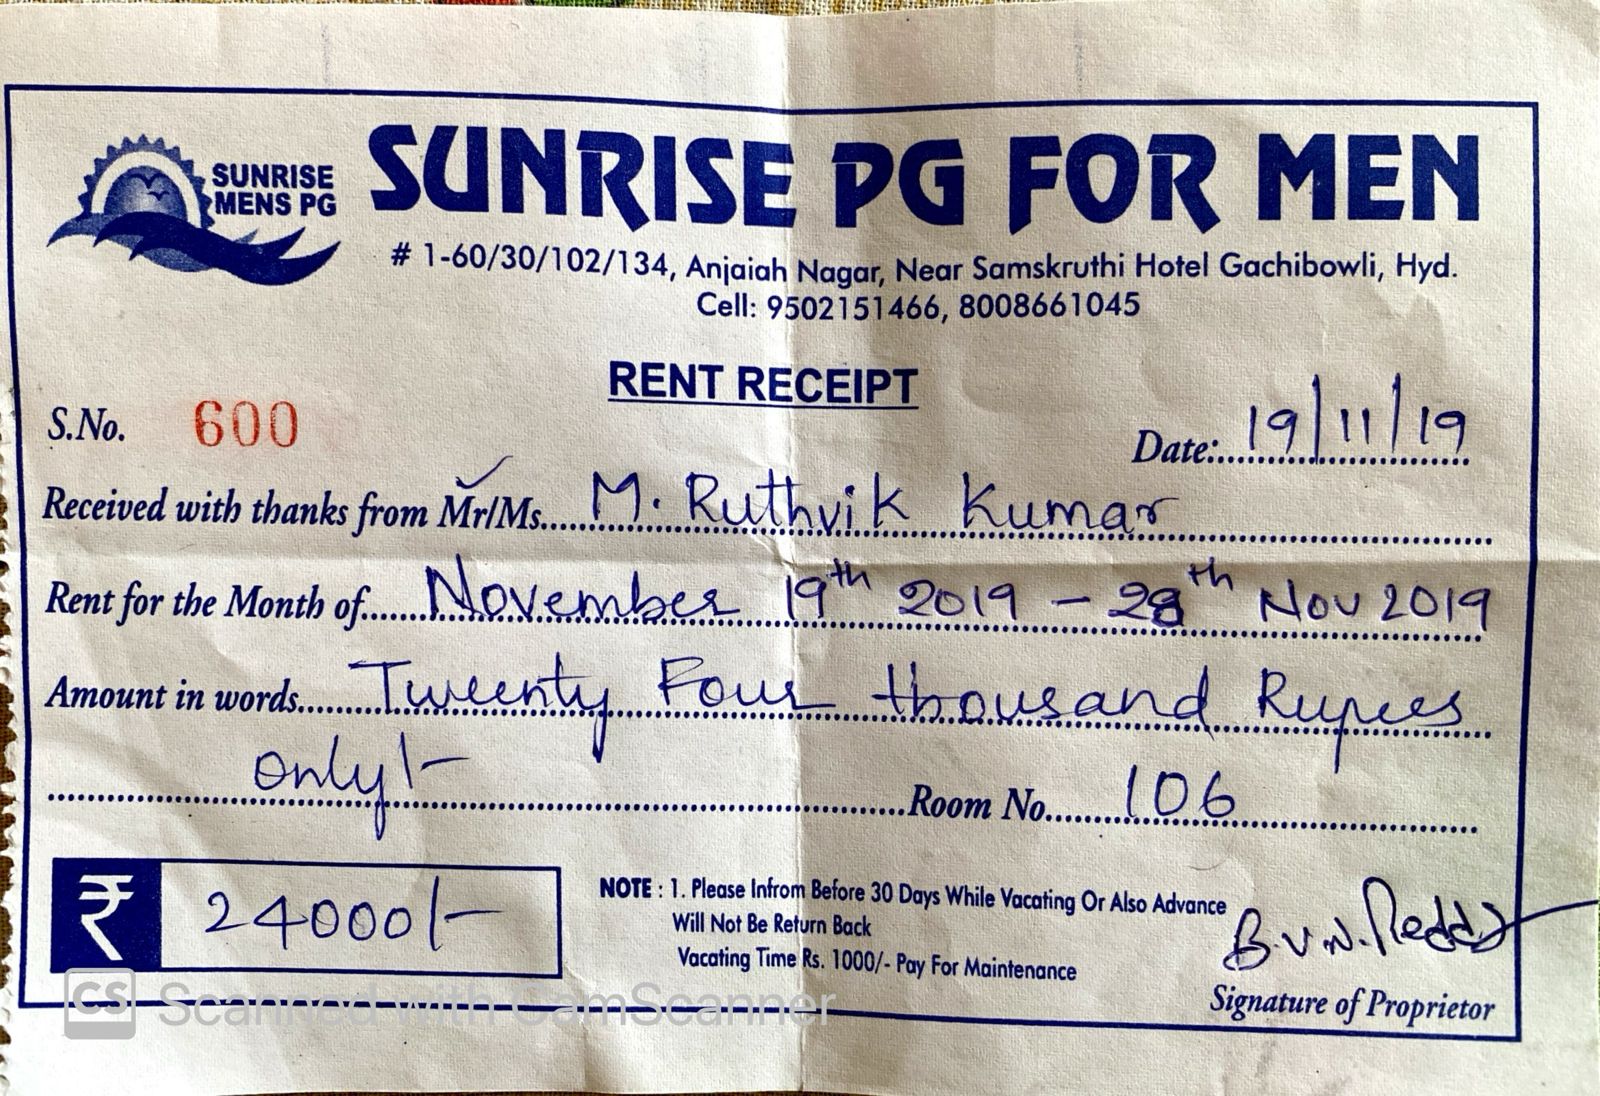 SUNRISE
MENS PG
SUNRISE PG FOR MEN
# 1-60/30/102/134, Anjaiah Nagar, Near Samskruthi Hotel Gachibowli, Hyd.
Cell: 9502151466, 8008661045
RENT RECEIPT
S.No. 600
Date:..19/11/19
Received with thanks from Mr/Ms.....M. Ruthvik Kumar
Rent for the Month of.....November 19th 2019 - 28th Nov 2019
Amount in words.....Tweenty Four thousand Rupees
only/- Room No.....106
₹ 24000/-
NOTE : 1. Please Infrom Before 30 Days While Vacating Or Also Advance
Will Not Be Return Back
Vacating Time Rs. 1000/- Pay For Maintenance
B.V.N. Reddy
Signature of Proprietor
CS Scanned with CamScanner